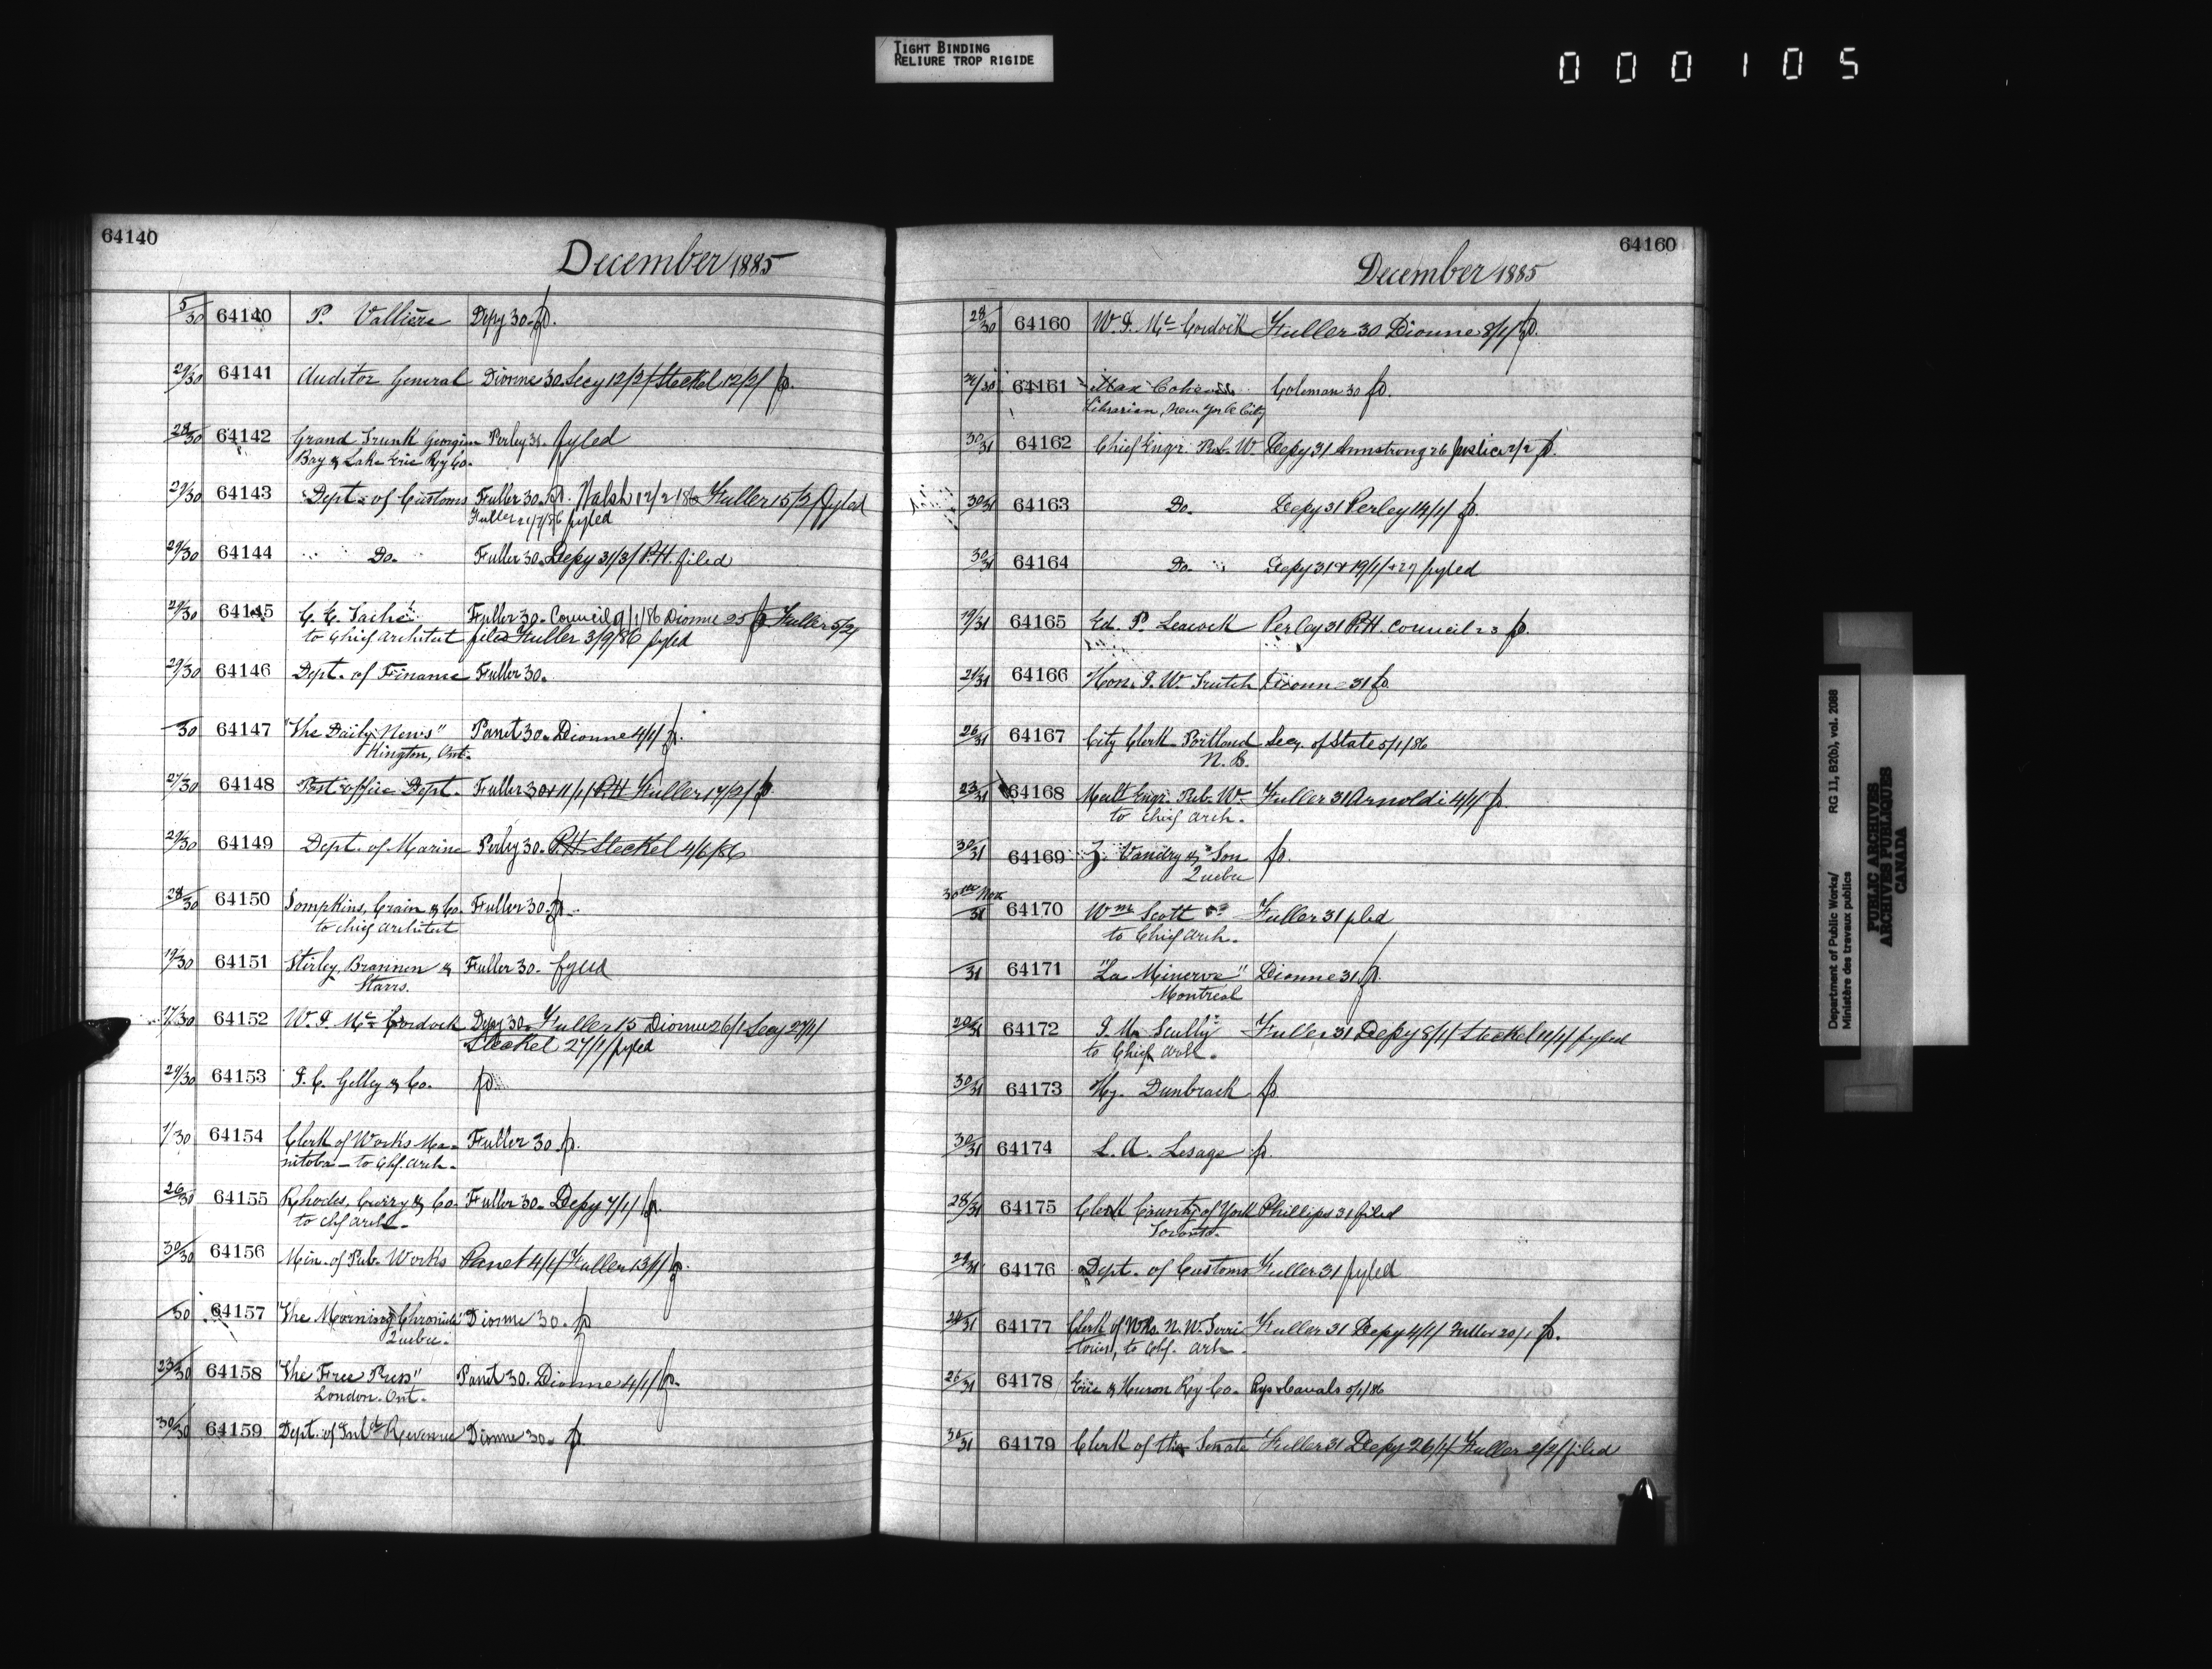 TIGHT BINDING
RELIURE TROP RIGIDE
000105
64140
December 1885
5/30 64140 P. Vallière Depy 30. fd.
29/30 64141 Auditor General Dionne 30. Secy 12/2/ Steckel 12/2/ fd.
28/30 64142 Grand Trunk Georgian Perley 31. fyled
Bay & Lake Erie Ry Co.
29/30 64143 Dept. of Customs Fuller 30. fd. Walsh 12/2/86 Fuller 15/2/ fyled
Fuller 21/7/86 fyled
29/30 64144 Do. Fuller 30. Depy 31/3/ P.H. filed
29/30 64145 E. Taché Fuller 30. Council 9/1/86 Dionne 25 fd Fuller 5/2/
to Chief Architect filed Fuller 3/9/86 fyled
29/30 64146 Dept. of Finance Fuller 30.
/30 64147 "The Daily News" Panet 30. Dionne 4/1/ fd.
Kington, Ont.
27/30 64148 Post office Dept. Fuller 30 & 11/1/ P.H Fuller 17/2/ fd.
29/30 64149 Dept. of Marine Perley 30. P.H. Steckel 4/6/86
28/30 64150 Tompkins, Crain & Co. Fuller 30. fd.
to chief architect
19/30 64151 Stirley, Brannen & Fuller 30. fyled
Starrs.
17/30 64152 W. J. Mc Cordock Depy 30. Fuller 15 Dionne 26/1 Secy 27/1/
Steckel 27/1/ fyled
29/30 64153 Gelley & Co. fd.
1/30 64154 Clerk of Works Ma- Fuller 30 fd.
nitoba - to Chf. Arch.
26/30 64155 Rhodes, Curry & Co. Fuller 30. Depy 7/1/ fd.
to chf arch.
30/30 64156 Min. of Pub. Works Panet 4/1/ Fuller 13/1/ fd.
/30 64157 "The Morning Chronicle" Dionne 30. fd
Quebec.
23/30 64158 "The Free Press" Panet 30. Dionne 4/1/ fd.
London. Ont.
30/30 64159 Dept. of Inld Revenue Dionne 30. fd.
64160
December 1885
28/30 64160 W. J. Mc Cordock Fuller 30 Dionne 8/1/ fd.
64161 Max Cohen Coleman 30 fd.
Librarian, New York City
30/31 64162 Chief Engr. Pub. W. Depy 31 Armstrong 26 Justice 2/2 fd.
30/31 64163 Do. Depy 31 Perley 14/1/ fd.
30/31 64164 Do. Depy 31 & 19/1/ & 27 fyled
19/31 64165 Ed. P. Leacock Perley 31 P.H. Council 23 fd.
21/31 64166 Hon. J. W. Trutch Dionne 31 fd.
26/31 64167 City Clerk Portland Secy. of State 5/1/86
N. B.
23/31 64168 Mecl Engr. Pub. W. Fuller 31 Arnoldi 4/1/ fd.
to chief arch.
30/31 64169 Z. Vandry & Son fd.
Quebec
30th Nov
/31 64170 Wm Scott Fuller 31 filed
to Chief Arch.
/31 64171 "La Minerve" Dionne 31. fd.
Montreal
20/31 64172 Scully Fuller 31 Depy 8/1/ Steckel 11/1/ fyled
to Chief Arch.
30/31 64173 Hy. Dunbrack fd.
30/31 64174 L. A. Lesage fd.
28/31 64175 Clerk County of York Phillips 31 filed
Toronto.
29/31 64176 Dept. of Customs Fuller 31 fyled
24/31 64177 Clerk of Wks. N. W. Terri Fuller 31 Depy 4/1/ Fuller 20/1 fd.
tories, to Chf. Arch.
26/31 64178 Erie & Huron Ry Co. Rys & Canals 5/1/86
30/31 64179 Clerk of the Senate Fuller 31 Depy 26/1/ Fuller 2/2/ filed
Department of Public Works/ RG 11, B2(b), vol. 2088
Ministère des travaux publics
PUBLIC ARCHIVES
ARCHIVES PUBLIQUES
CANADA